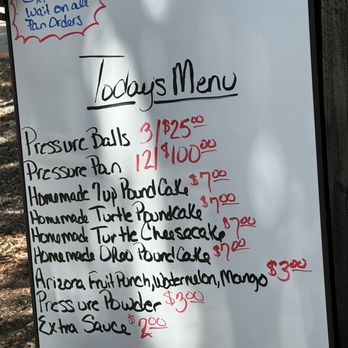 Wait on all
Pan Orders
Todays Menu
Pressure Balls 3/$25.00
Pressure Pan 12/$100.00
Homemade 7up Pound Cake $7.00
Homemade Turtle Poundcake $7.00
Homemade Turtle Cheesecake $7.00
Homemade Oreo Pound Cake $7.00
Arizona Fruit Punch, Watermelon, Mango $3.00
Pressure Powder $3.00
Extra Sauce $2.00